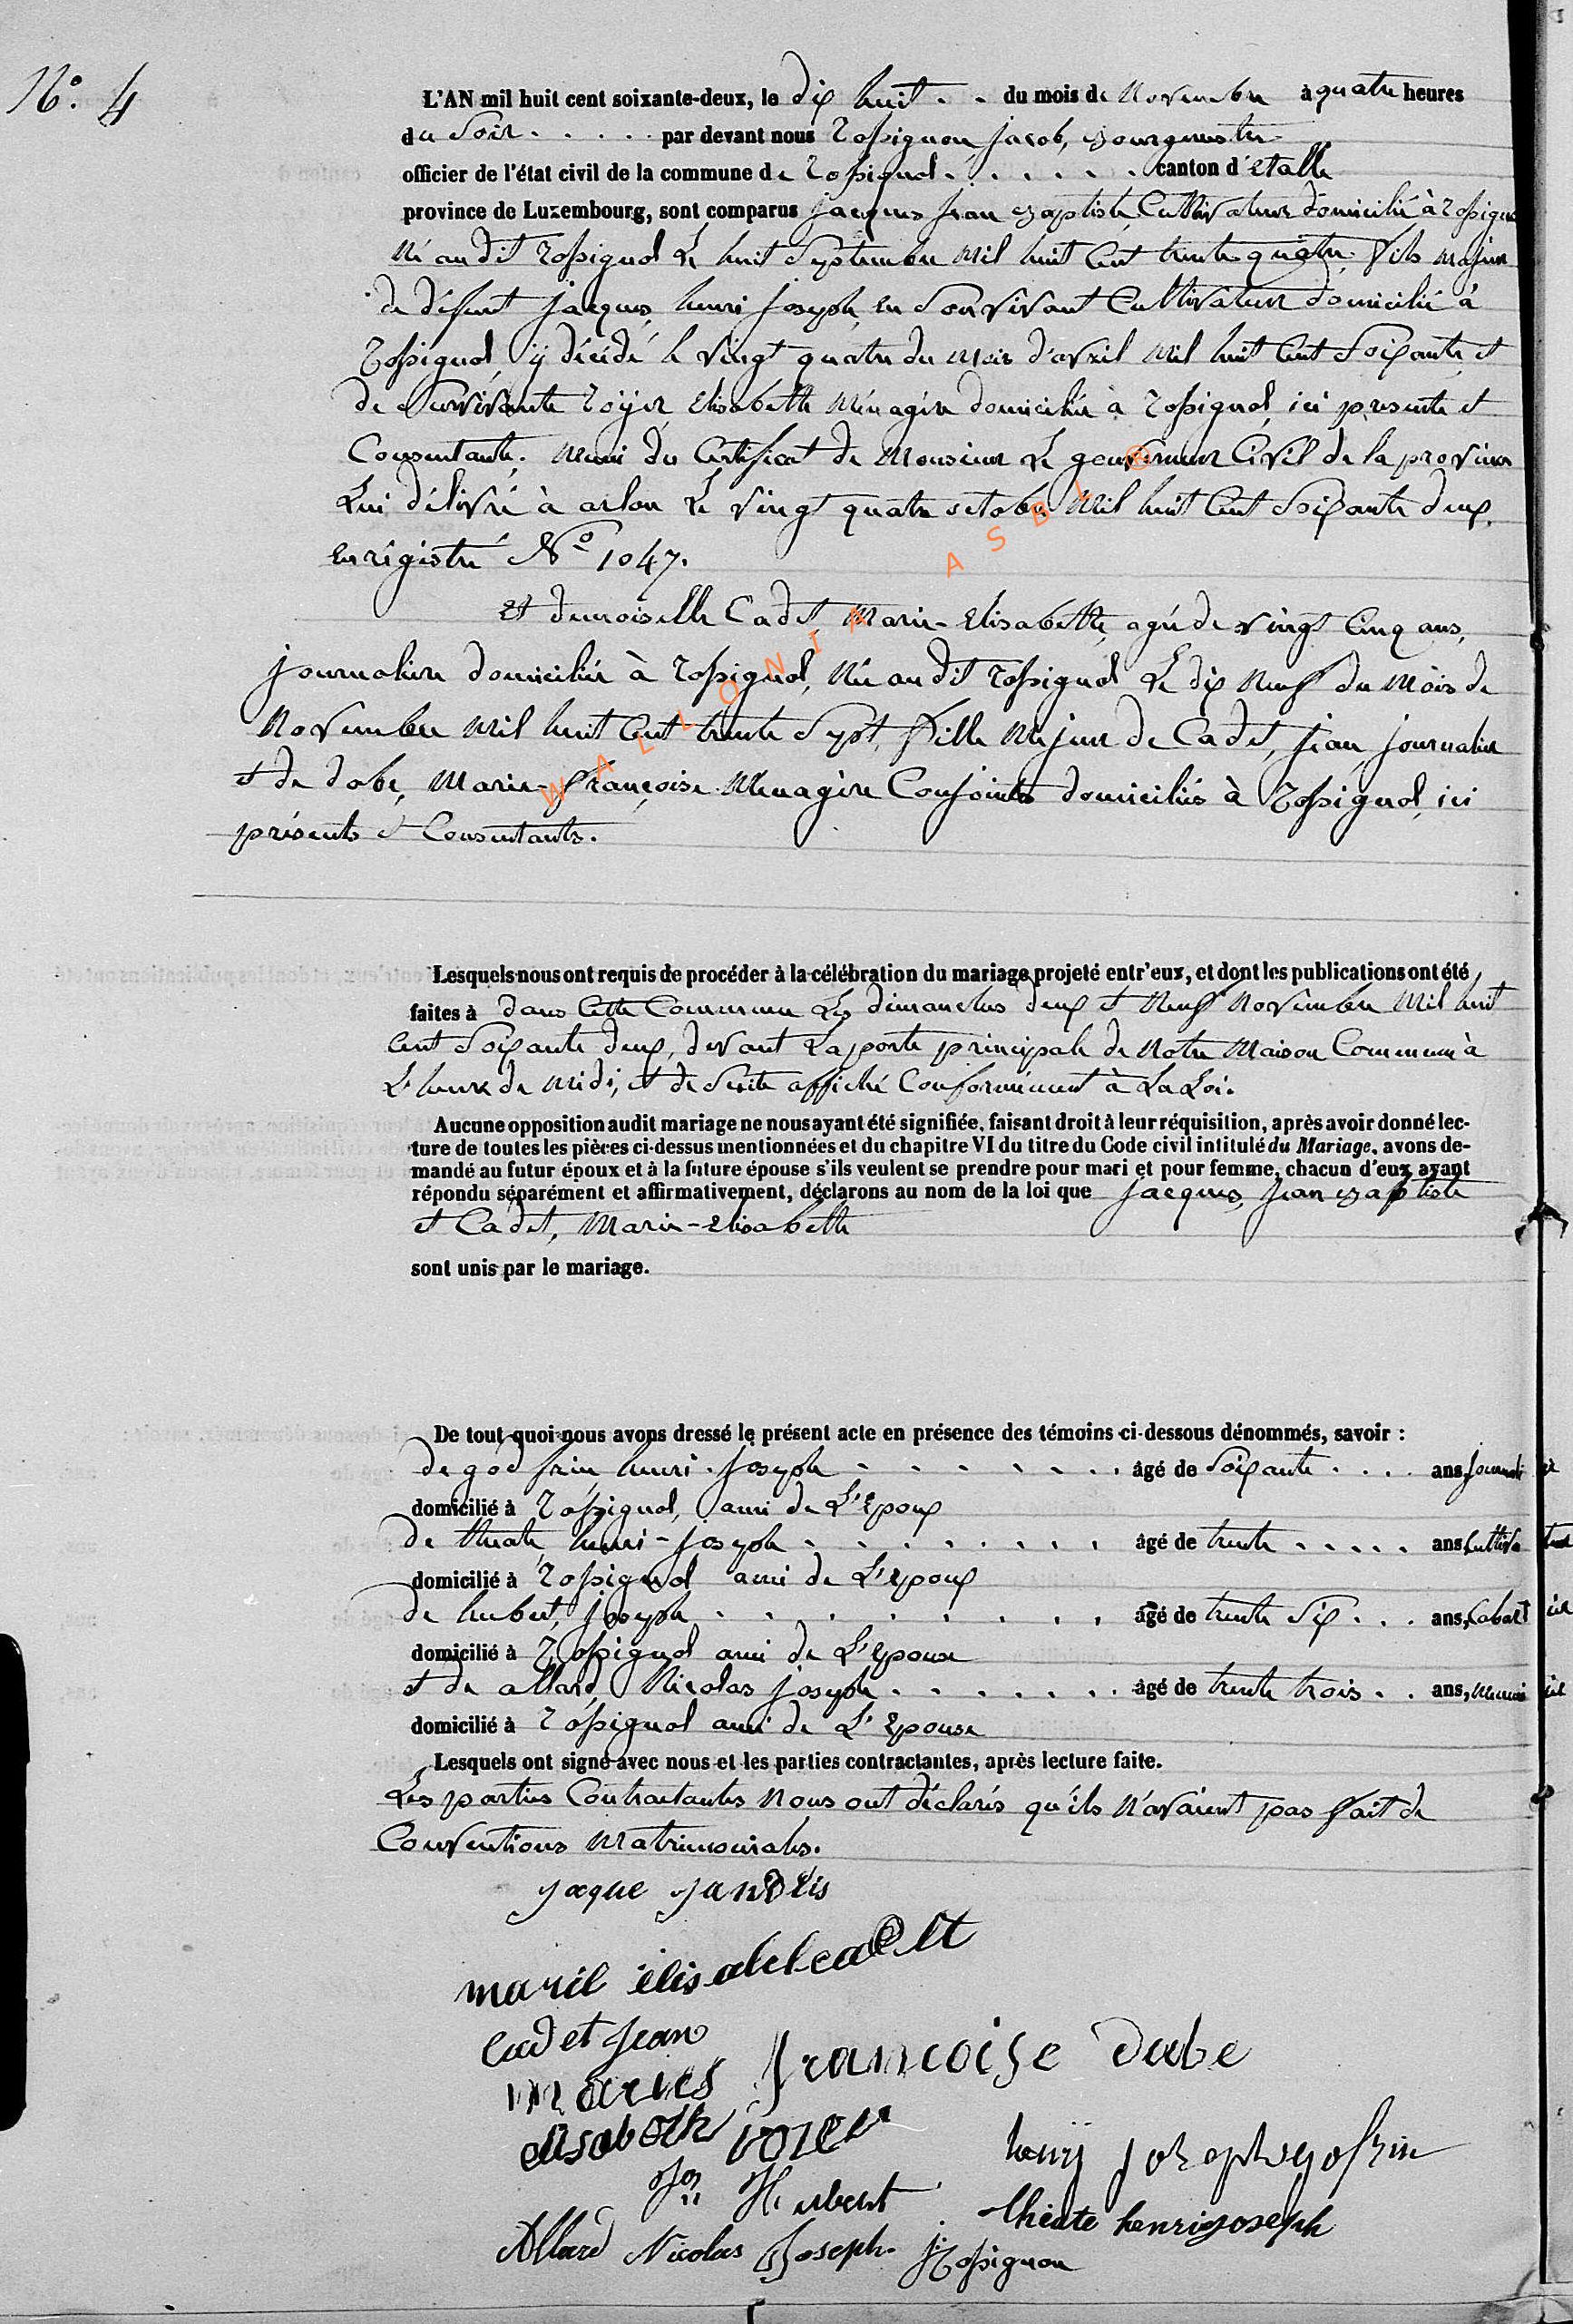 N°. 4
L'AN mil huit cent soixante-deux, le dix huit . . du mois de Novembre à quatre heures
du Soir . . . . . par devant nous Rossignon, Jacob, Bourgmestre
officier de l'état civil de la commune de Rossignol . . . . . . canton d'Etalle
province de Luxembourg, sont comparus Jacques Jean Baptiste, Cultivateur domicilié à Rossignol
Né au dit Rossignol Le huit Septembre Mil huit Cent trente quatre, fils Majeur
de défunt Jacques, henri Joseph, en Son vivant Cultivateur domicilié à
Rossignol, ÿ décédé le vingt quatre du Mois d'avril Mil huit Cent Soixante, et
de Survivante Roÿer, Elisabeth Ménagère domiciliée à Rossignol, ici présente et
Consentante. Muni du Certificat de Monsieur Le gouverneur Civil de la province
Lui délivré à arlon Le vingt quatre octobre Mil huit Cent Soixante deux,
Enrégistré N° 1047.
Et demoiselle Cadet, Marie-Elisabeth, agée de vingt Cinq ans,
Journalière domiciliée à Rossignol, Née au dit Rossignol Le dix Neuf du Mois de
Novembre Mil huit Cent trente Sept, fille Majeure de Cadet, Jean, Journalier
et de dabe, Marie-françoise Ménagère Conjoints domiciliés à Rossignol, ici
présents et Consentants.
WALLONIA ASBL ®
Lesquels nous ont requis de procéder à la célébration du mariage projeté entr'eux, et dont les publications ont été
faites à dans Cette Commune Les dimanches deux et Neuf Novembre Mil huit
Cent Soixante deux, devant La porte principale de Notre Maison Commune à
L'heure de Midi, et de Suite affiché Conformément à La Loi.
Aucune opposition audit mariage ne nous ayant été signifiée, faisant droit à leur réquisition, après avoir donné lec-
ture de toutes les pièces ci-dessus mentionnées et du chapitre VI du titre du Code civil intitulé du Mariage, avons de-
mandé au futur époux et à la future épouse s'ils veulent se prendre pour mari et pour femme, chacun d'eux ayant
répondu séparément et affirmativement, déclarons au nom de la loi que Jacques, Jean Baptiste
et Cadet, Marie-Elisabeth
sont unis par le mariage.
De tout quoi nous avons dressé le présent acte en présence des témoins ci-dessous dénommés, savoir :
de godfrin henri-Joseph . . . . . . . âgé de Soixante . . . . ans, Journalier
domicilié à Rossignol, ami de L'Epoux
de théate, henri-Joseph . . . . . . . . âgé de trente . . . . . ans, Cultivateur
domicilié à Rossignol ami de L'Epoux
de hubert, Joseph . . . . . . . . âgé de trente Six . . . ans, Cabartier
domicilié à Rossignol ami de L'Epouse
et de allard Nicolas Joseph . . . . . . . âgé de trente trois . . ans, menuisier
domicilié à Rossignol ami de L'Epouse
Lesquels ont signé avec nous et les parties contractantes, après lecture faite.
Les parties Contractantes Nous ont déclarés qu'ils N'avaient pas fait de
Conventions Matrimoniales.
jaque
cadet jean
francoise dabe
Jos Hubert
théate henri joseph
Allard Nicolas Joseph
J Rossignon